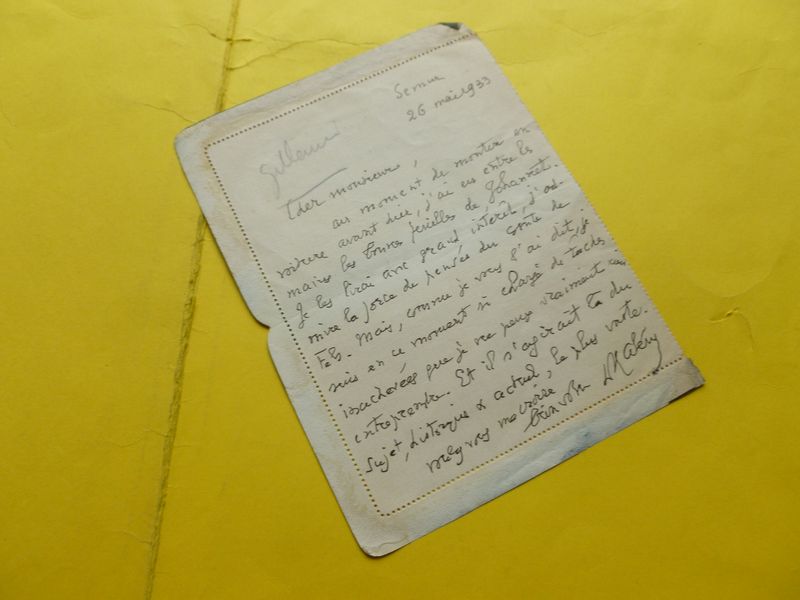 Semur
26 mai 1933
Cher monsieur,
au moment de monter en
voiture avant hier, j'ai eu entre les
mains les bonnes feuilles de Johannet.
Je les lirai avec grand intérêt, j'ad-
mire la force de pensée du comte de
Fels. Mais, comme je vous l'ai dit, je
suis en ce moment si chargé de tâches
inachevées que je ne peux vraiment rien
entreprendre. Et il s'agirait là du
sujet, historique & actuel, le plus vaste.
bien vôtre